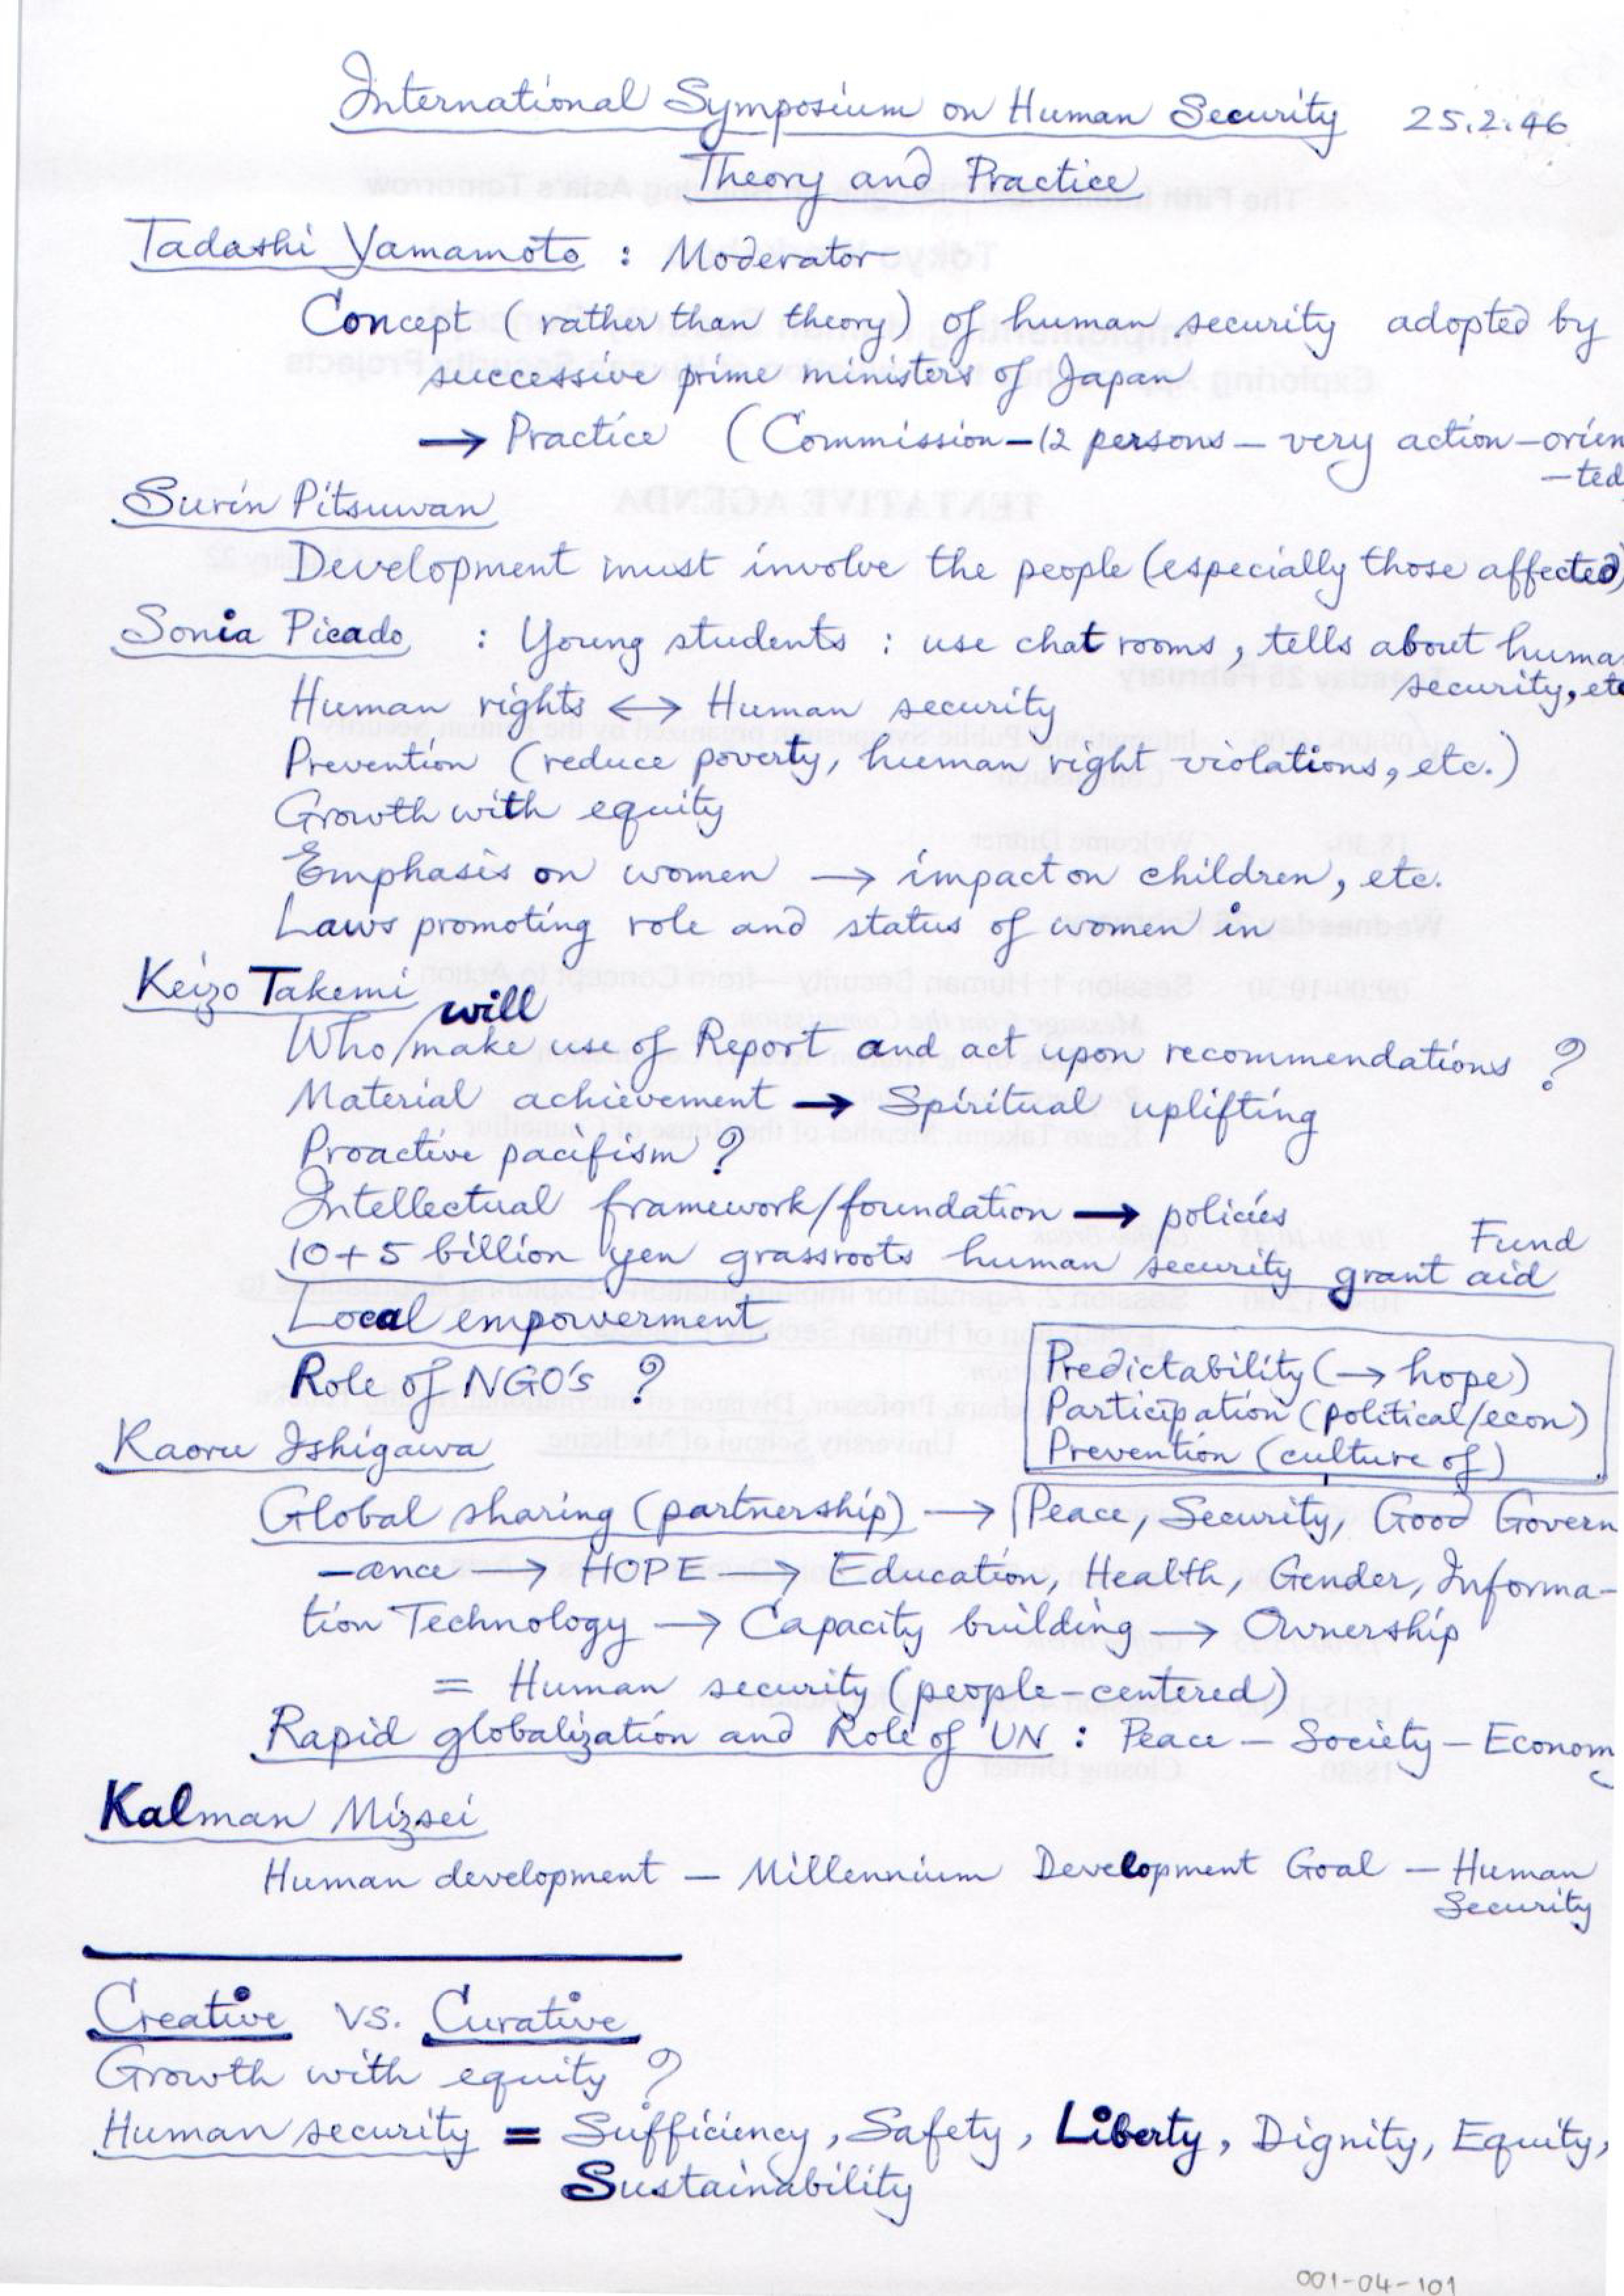 International Symposium on Human Security 25.2.46
Theory and Practice
Tadashi Yamamoto : Moderator
Concept (rather than theory) of human security adopted by
successive prime ministers of Japan
→ Practice (Commission–12 persons – very action–orien
–ted
Surin Pitsuwan
Development must involve the people (especially those affected)
Sonia Picado : Young students : use chat rooms, tells about huma
security, etc
Human rights ↔ Human security
Prevention (reduce poverty, human right violations, etc.)
Growth with equity
Emphasis on women → impact on children, etc.
Laws promoting role and status of women in
Keizo Takemi
will
Who/make use of Report and act upon recommendations ?
Material achievement → Spiritual uplifting
Proactive pacifism ?
Intellectual framework/foundation → policies
Fund
10+5 billion yen grassroots human security grant aid
Local empowerment
Role of NGO's ?
Predictability (→ hope)
Participation (political/econ)
Prevention (culture of)
Kaoru Ishigawa
Global sharing (partnership) → Peace, Security, Good Govern
–ance → HOPE → Education, Health, Gender, Informa-
tion Technology → Capacity building → Ownership
= Human security (people-centered)
Rapid globalization and Role of UN : Peace – Society – Economy
Kalman Mizsei
Human development – Millennium Development Goal – Human
Security
Creative vs. Curative
Growth with equity ?
Human security = Sufficiency, Safety, Liberty, Dignity, Equity,
Sustainability
001-04-101